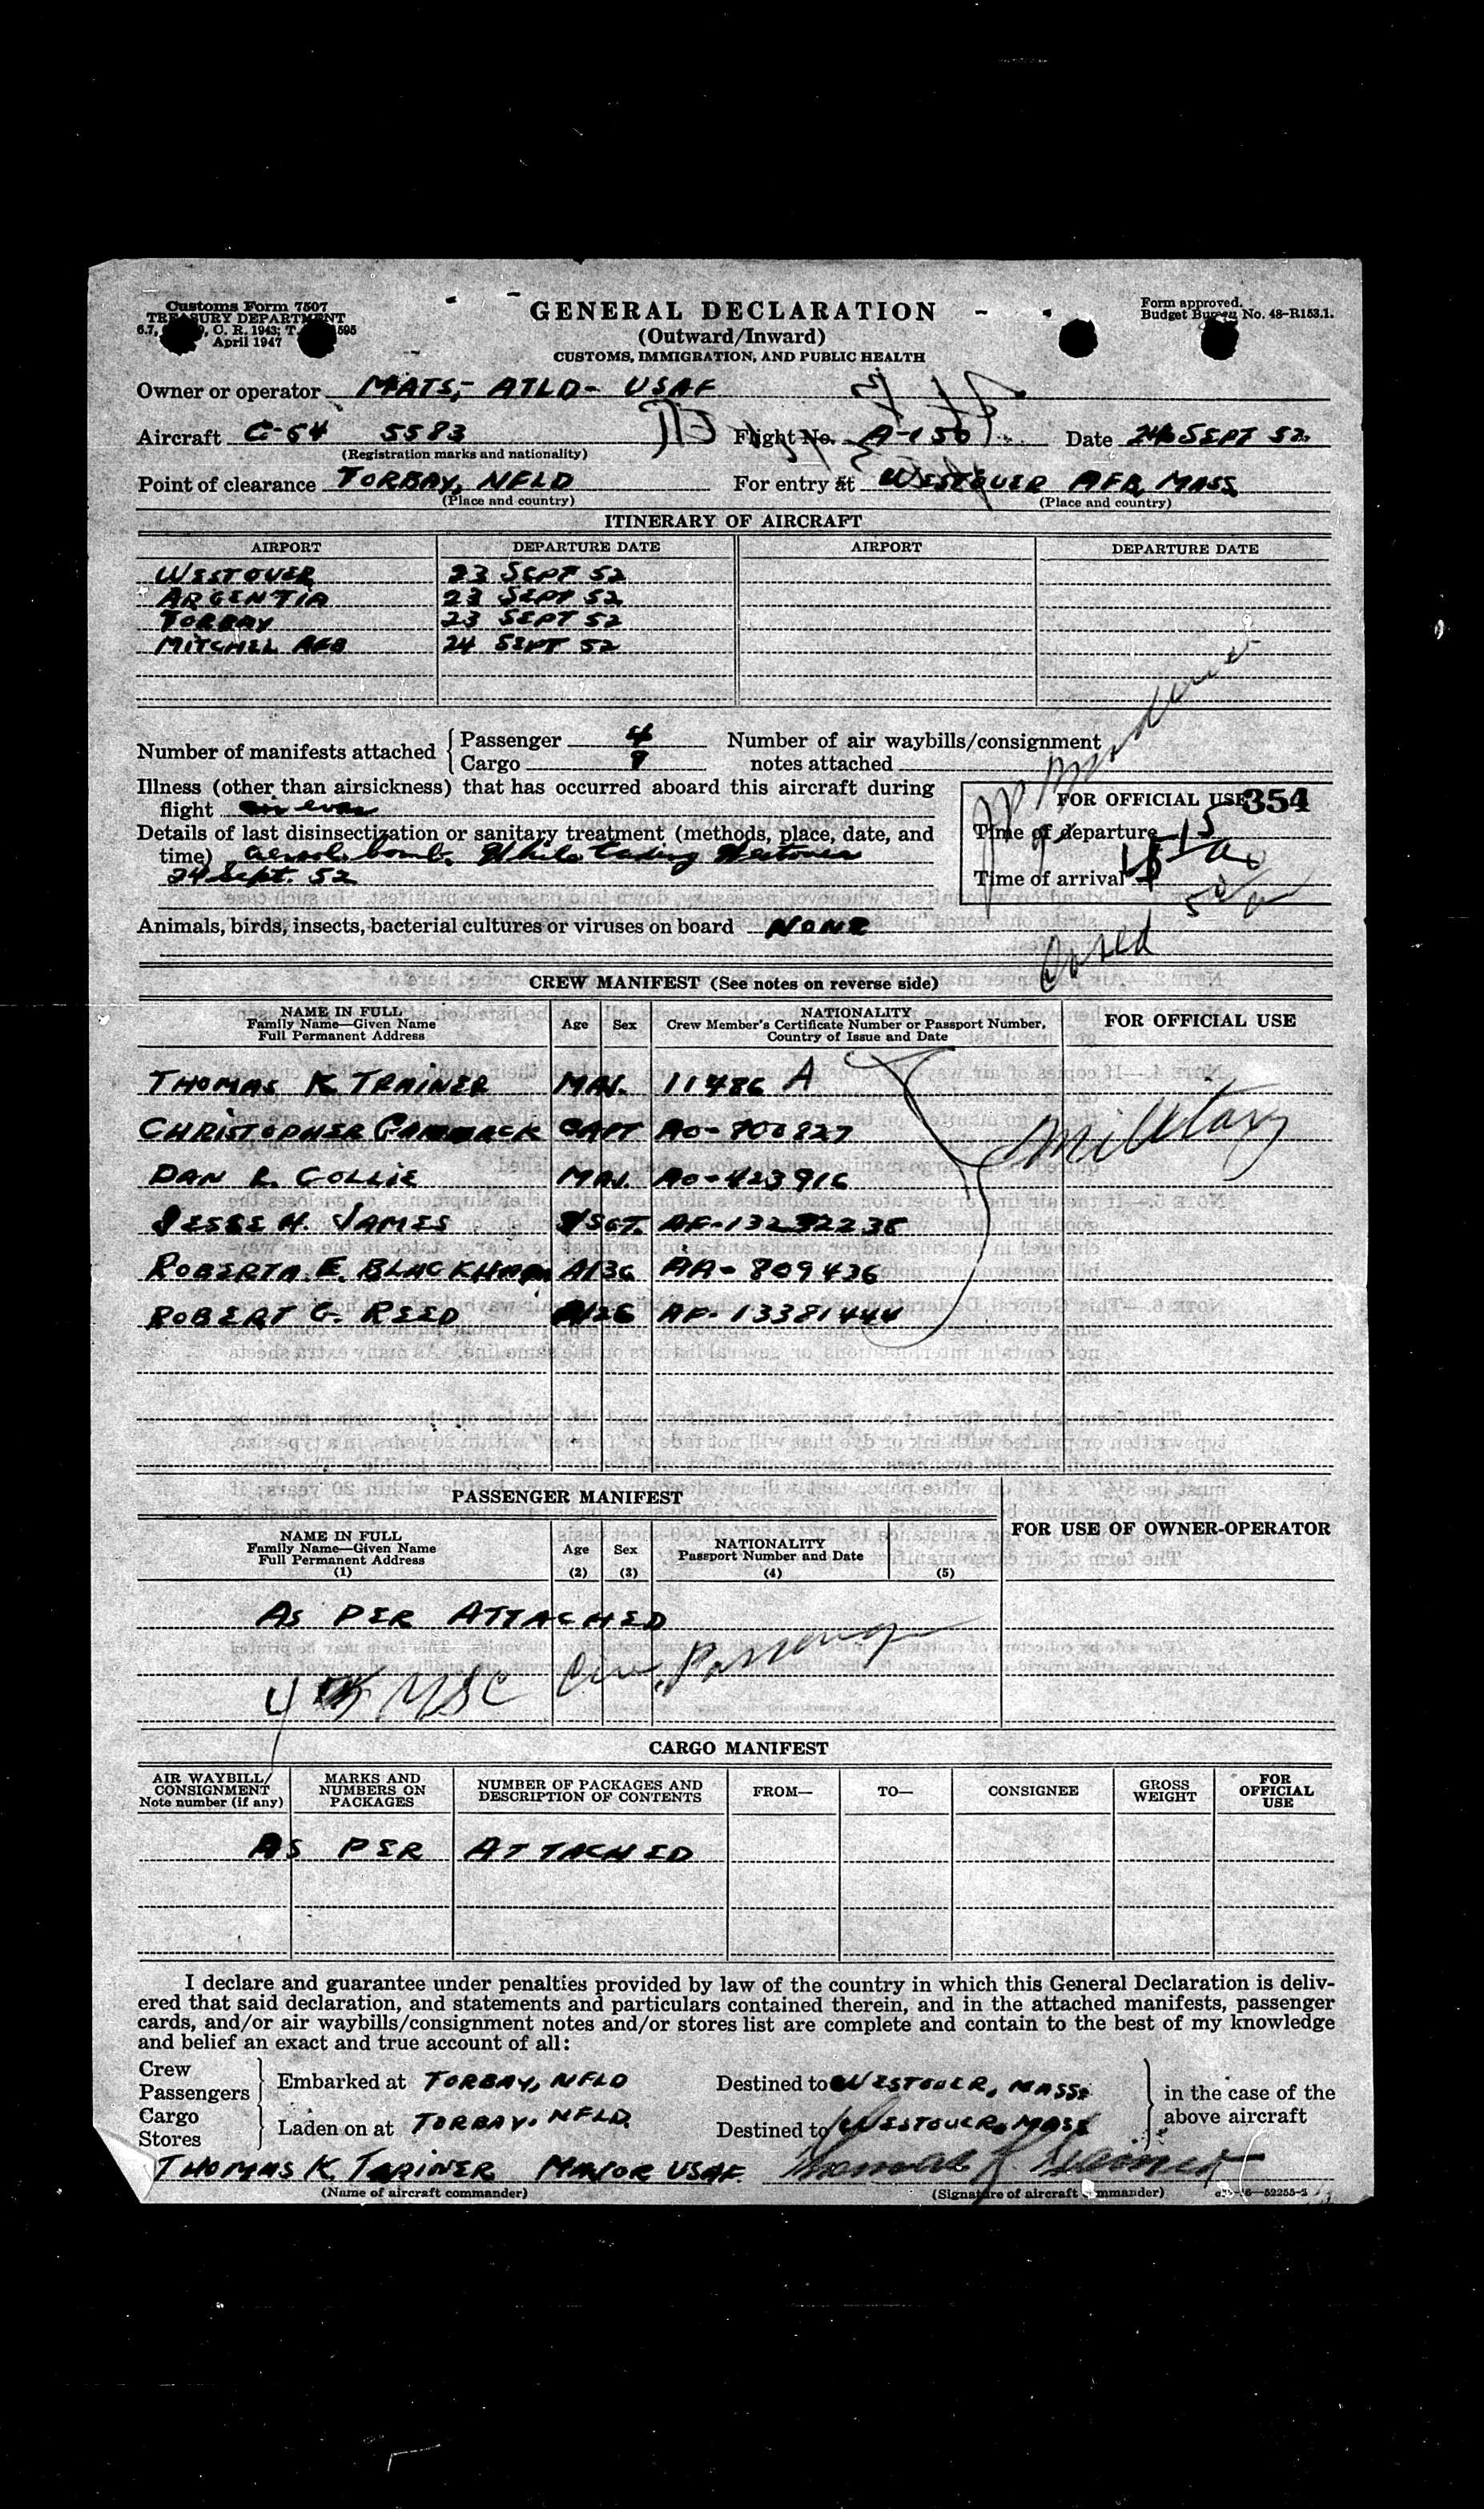 Customs Form 7507
TREASURY DEPARTMENT
April 1947
GENERAL DECLARATION
(Outward/Inward)
CUSTOMS, IMMIGRATION, AND PUBLIC HEALTH
Form approved.
Budget Bureau No. 48-R153.1.
Owner or operator MATS, ATLD- USAF
Aircraft C-54 5583 Flight No. A-150 Date 24 SEPT 52
(Registration marks and nationality)
Point of clearance TORBAY, NFLD For entry at WESTOVER AFB, MASS
(Place and country) (Place and country)
ITINERARY OF AIRCRAFT
AIRPORT DEPARTURE DATE AIRPORT DEPARTURE DATE
WESTOVER 23 SEPT 52
ARGENTIA 23 SEPT 52
TORBAY 23 SEPT 52
MITCHEL AFB 24 SEPT 52
Number of manifests attached Passenger 4 Number of air waybills/consignment
Cargo 9 notes attached
Illness (other than airsickness) that has occurred aboard this aircraft during
flight
FOR OFFICIAL USE 354
Details of last disinsectization or sanitary treatment (methods, place, date, and
Time of departure
time) bomb. While Westover
24 Sept. 52
Time of arrival
Animals, birds, insects, bacterial cultures or viruses on board NONE
CREW MANIFEST (See notes on reverse side)
NAME IN FULL
Family Name—Given Name
Full Permanent Address
Age Sex
NATIONALITY
Crew Member's Certificate Number or Passport Number,
Country of Issue and Date
FOR OFFICIAL USE
THOMAS K TRAINER MAJ. 11486 A
CHRISTOPHER CAPT AO-800827
Military
DAN L. COLLIE MAJ. AO-423916
JESSE H. JAMES SGT. AF-13292238
ROBERTA E. A/3C AA-809436
ROBERT G. REED A/2C AF-13381444
PASSENGER MANIFEST
NAME IN FULL
Family Name—Given Name
Full Permanent Address
(1)
Age
(2)
Sex
(3)
NATIONALITY
Passport Number and Date
(4) (5)
FOR USE OF OWNER-OPERATOR
AS PER ATTACHED
4 USC Passenger
CARGO MANIFEST
AIR WAYBILL/
CONSIGNMENT
Note number (if any)
MARKS AND
NUMBERS ON
PACKAGES
NUMBER OF PACKAGES AND
DESCRIPTION OF CONTENTS
FROM—
TO—
CONSIGNEE
GROSS
WEIGHT
FOR
OFFICIAL
USE
AS PER ATTACHED
I declare and guarantee under penalties provided by law of the country in which this General Declaration is deliv-
ered that said declaration, and statements and particulars contained therein, and in the attached manifests, passenger
cards, and/or air waybills/consignment notes and/or stores list are complete and contain to the best of my knowledge
and belief an exact and true account of all:
Crew
Passengers
Embarked at TORBAY, NFLD Destined to WESTOVER, MASS.
in the case of the
above aircraft
Cargo
Stores
Laden on at TORBAY, NFLD. Destined to WESTOVER, MASS
THOMAS K. TRAINER MAJOR USAF Thomas K Trainer
(Name of aircraft commander) (Signature of aircraft commander)